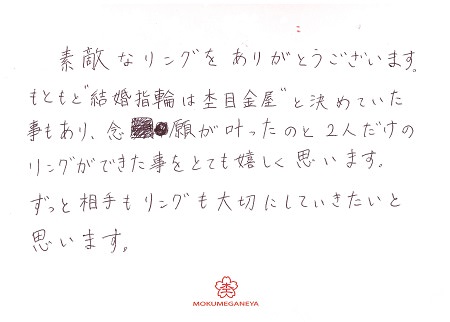 素敵なリングをありがとうございます。
もともと"結婚指輪は杢目金屋"と決めていた
事もあり、念願が叶ったのと2人だけの
リングができた事をとても嬉しく思います。
ずっと相手もリングも大切にしていきたいと
思います。
杢
MOKUMEGANEYA